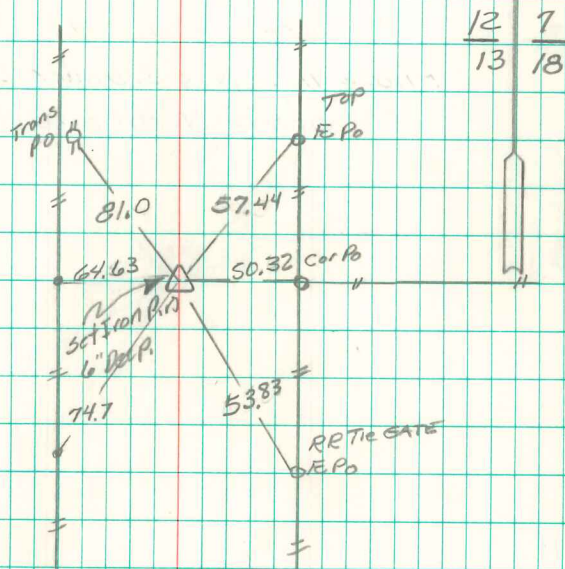 12 7
13 18
TOP
E. Po
Trans
po
81.0
57.44
64.63
50.32 Cor Po
Set Iron Pin
6" Deep
74.7
53.83
RR Tie GATE
E. Po